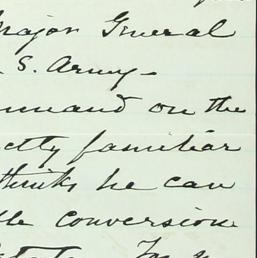 Major General
. S. Army -
ommand on the
ctly familiar
thinks he can
the conversion